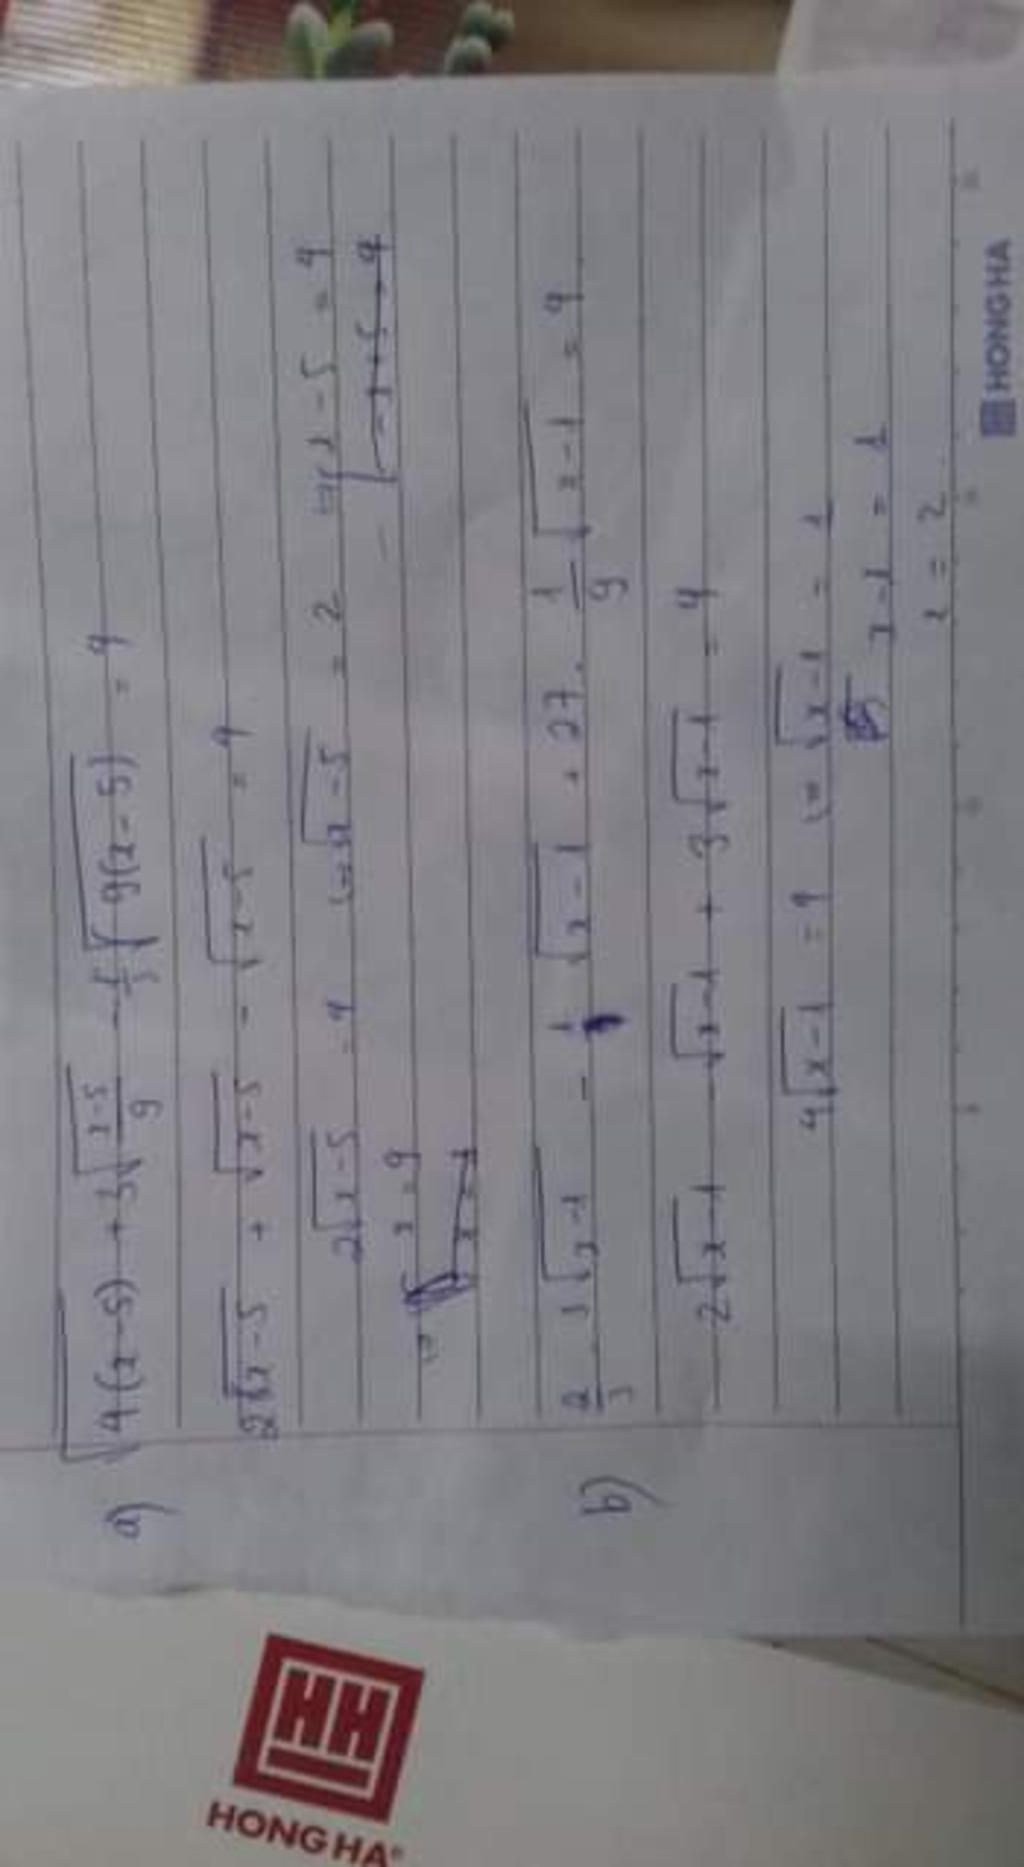 a) √4(x-5) + 3√(x-5)/9 - 1/3 √9(x-5) = 4
2√x-5 + √x-5 - √x-5 = 4
2√x-5 = 4 (=) √x-5 = 2 (=) x-5 = 4
(=) x = 9
b) 2/3 √x-1 - √x-1 + 27. 1/9 √x-1 = 4
2√x-1 - √x-1 + 3√x-1 = 4
4√x-1 = 4 (=) √x-1 = 1
x-1 = 1
x = 2
HONG HA
HH
HONG HA